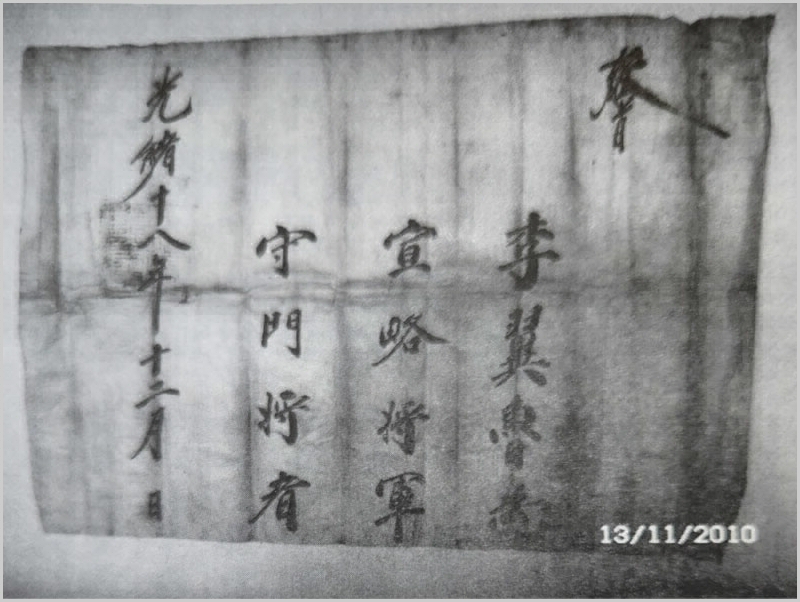 敎旨
李翼魯爲
宣略將軍
守門將者
光緖十八年十二月 日
13/11/2010